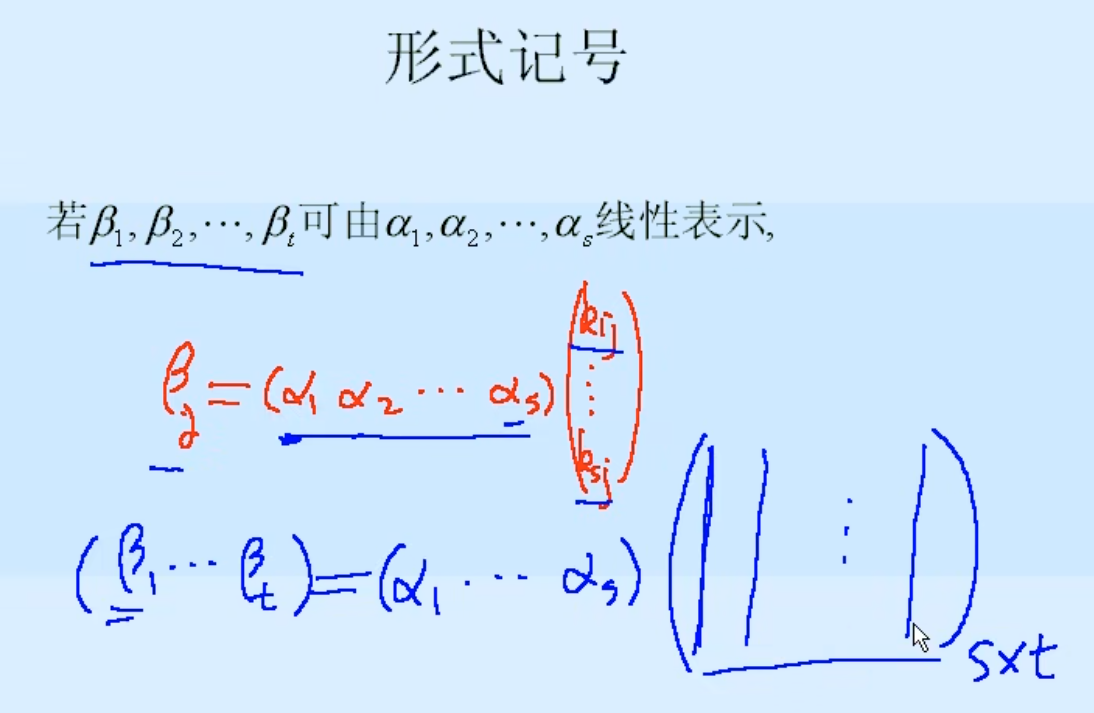 形式记号
若β₁, β₂, ⋯, βₜ可由α₁, α₂, ⋯, αₛ线性表示,
βⱼ = (α₁ α₂ ⋯ αₛ) (k₁ⱼ ⋮ kₛⱼ)
(β₁ ⋯ βₜ) = (α₁ ⋯ αₛ) ( | | ⋮ | ) s×t